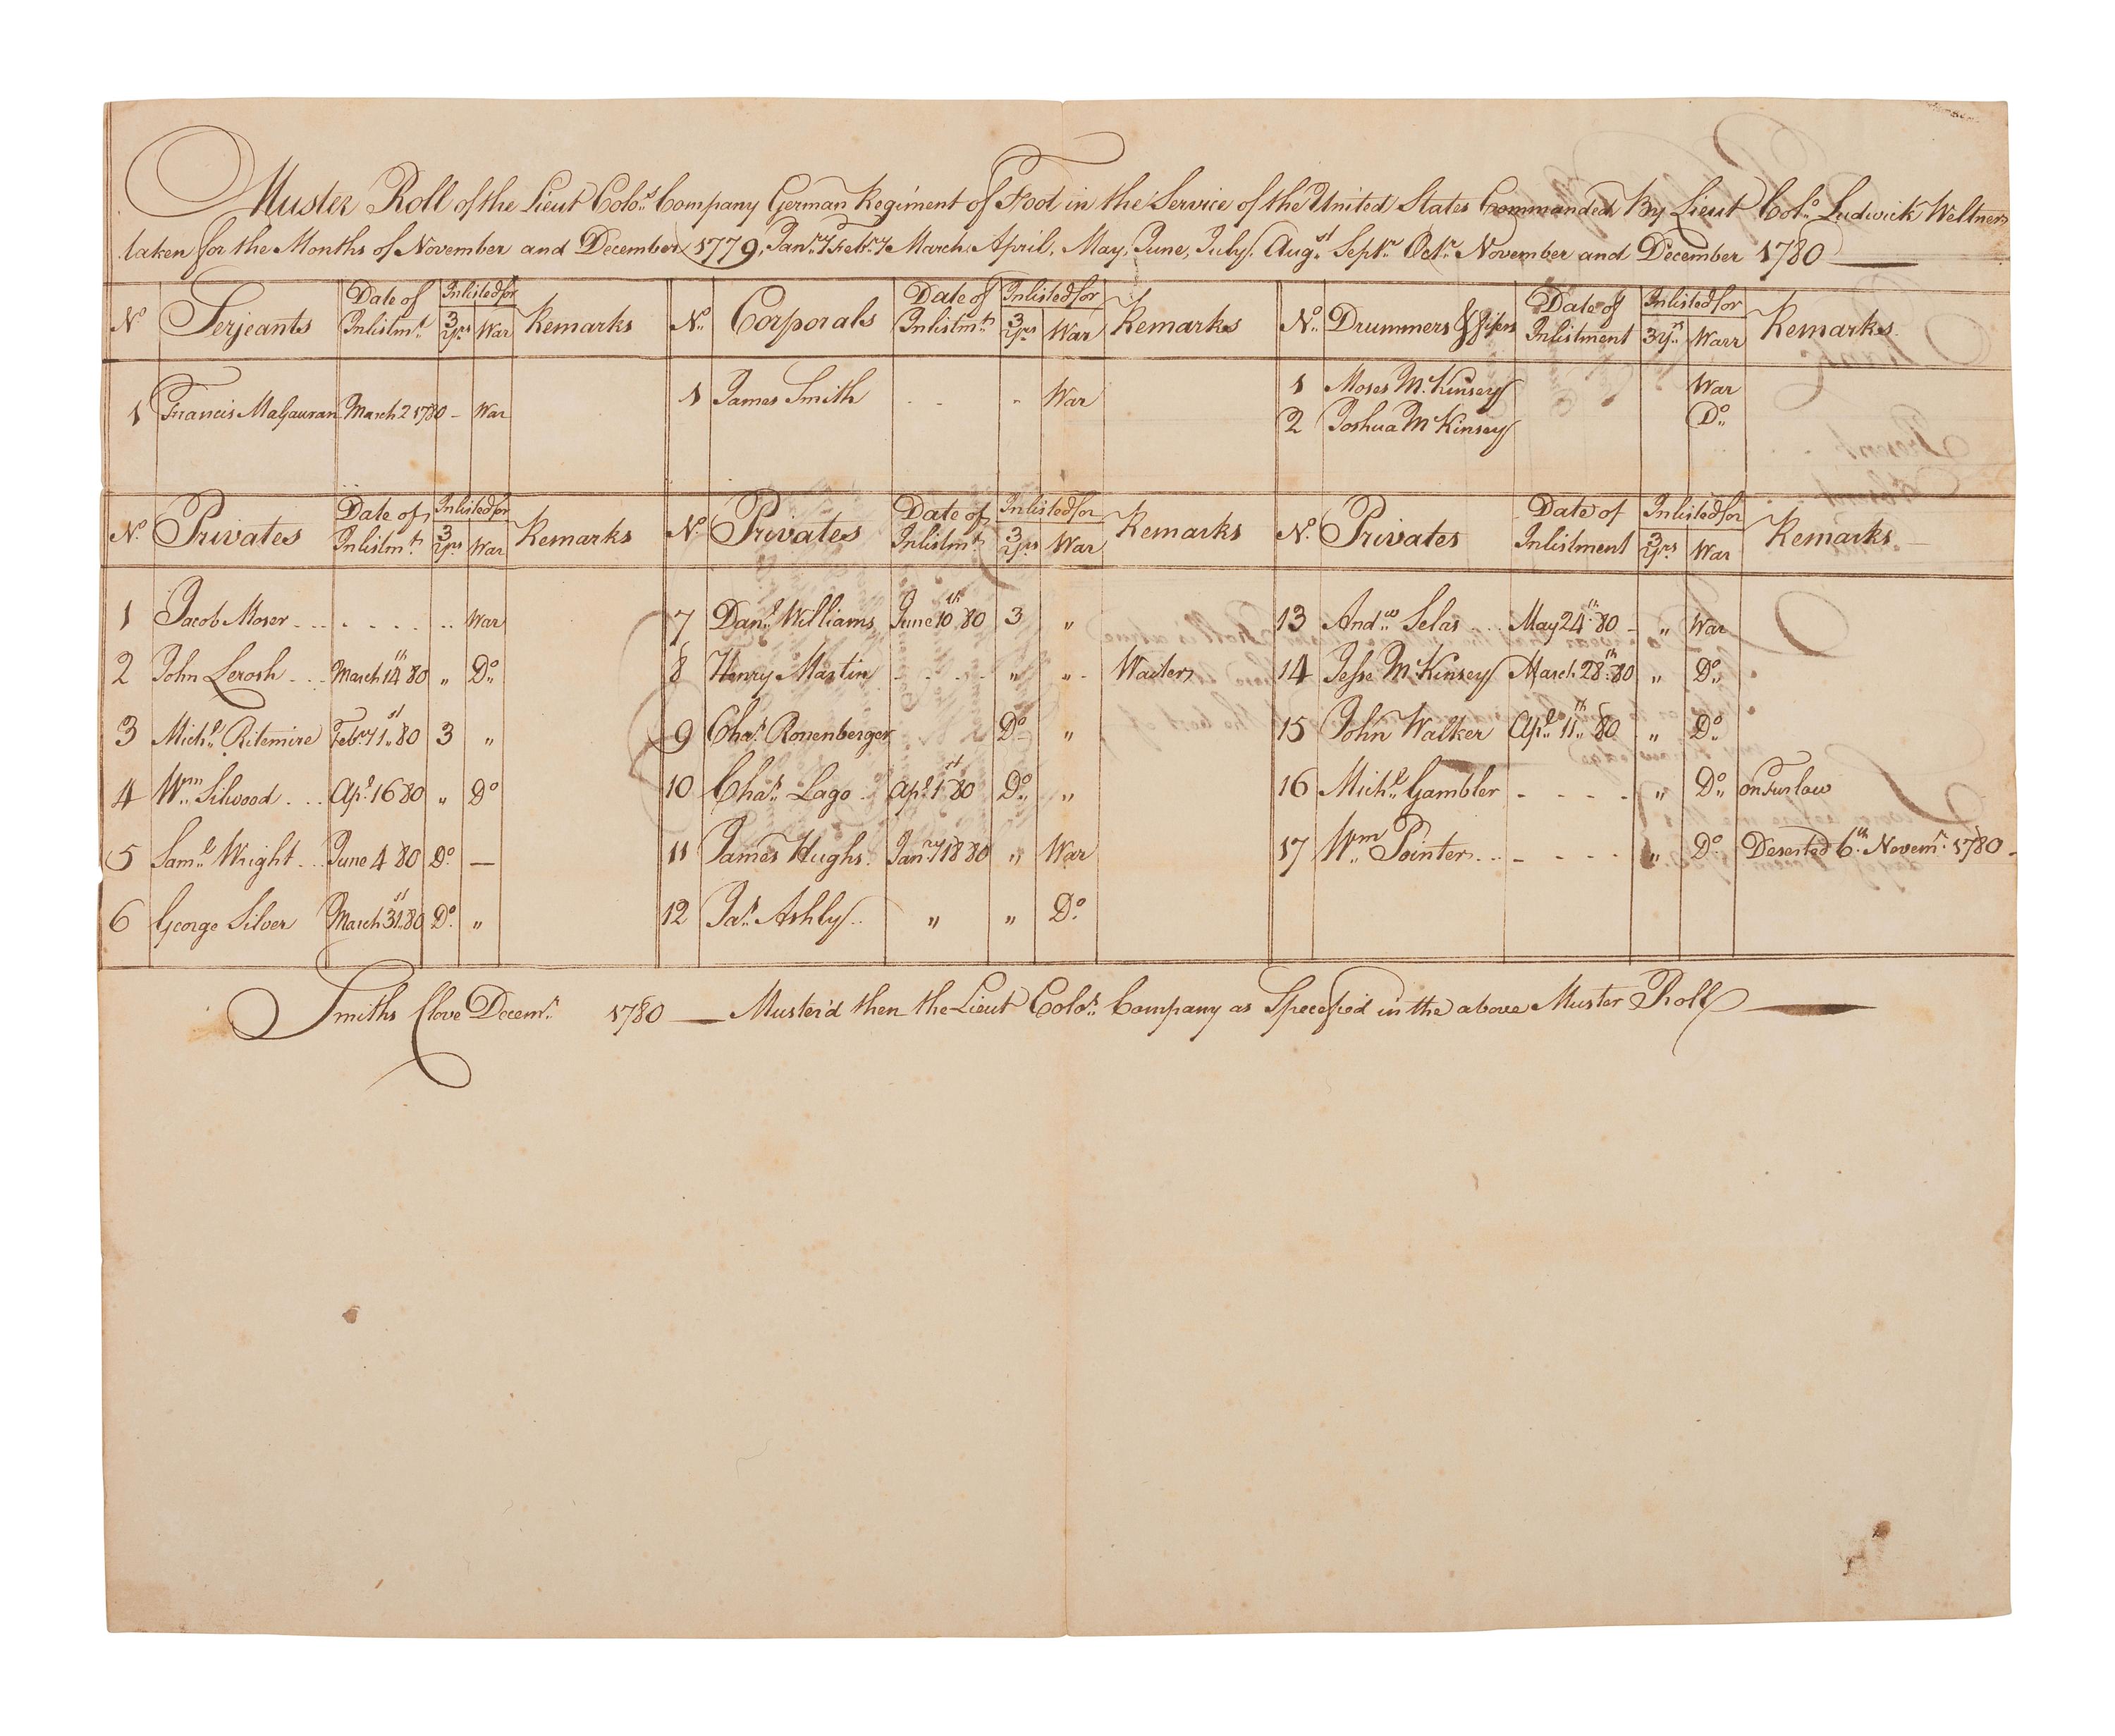 Muster Roll of the Lieut Colo.s Company German Regiment of Foot in the Service of the United States Commanded By Lieut Col.o Ludwick Weltner
taken for the Months of November and December 1779, Jan.ry Feb.ry March, April, May, June, July, Aug.st Sept.r Oct.r November and December 1780
N.o Serjeants Date of Inlistm.t Inlisted for 3 Y.rs War Remarks N.o Corporals Date of Inlistm.t Inlisted for 3 Y.rs War Remarks N.o Drummers & fifers Date of Inlistment Inlisted for 3 Y.rs Warr Remarks
1 Francis Magauran March 2 1780 - War 1 James Smith - - - War 1 Moses M.cKinsey War
2 Joshua M.cKinsey D.o
N.o Privates Date of Inlistm.t Inlisted for 3 Y.rs War Remarks N.o Privates Date of Inlistm.t Inlisted for 3 Y.rs War Remarks N.o Privates Date of Inlistment Inlisted for 3 Y.rs War Remarks
1 Jacob Moser War 7 Dan.l Williams June 10th 80 3 " 13 And.w Selas May 24th 80 - " War
2 John Lerosh March 14th 80 " D.o 8 Henry Martin - - - - " " Waiter 14 Jesse M.cKinsey March 28th 80 " D.o
3 Mich.l Ritemire Feb.ry 1st 80 3 " 9 Cha.s Ronenberger D.o " 15 John Walker Ap.l 11th 80 " D.o
4 W.m Silwood Ap.l 16 80 " D.o 10 Cha.s Lago Ap.l 1st 80 D.o " 16 Mich.l Gambler - - - - " D.o on Furlow
5 Sam.l Wright June 4 80 D.o — 11 James Hughs Jan.ry 18 80 " War 17 W.m Pointer - - - - " D.o Deserted 6th Novem.r 1780
6 George Silver March 31st 80 D.o " 12 Ja.s Ashly " " D.o
Smiths Clove Decem.r 1780 — Muster'd then the Lieut Colo.s Company as Specefied in the above Muster Roll